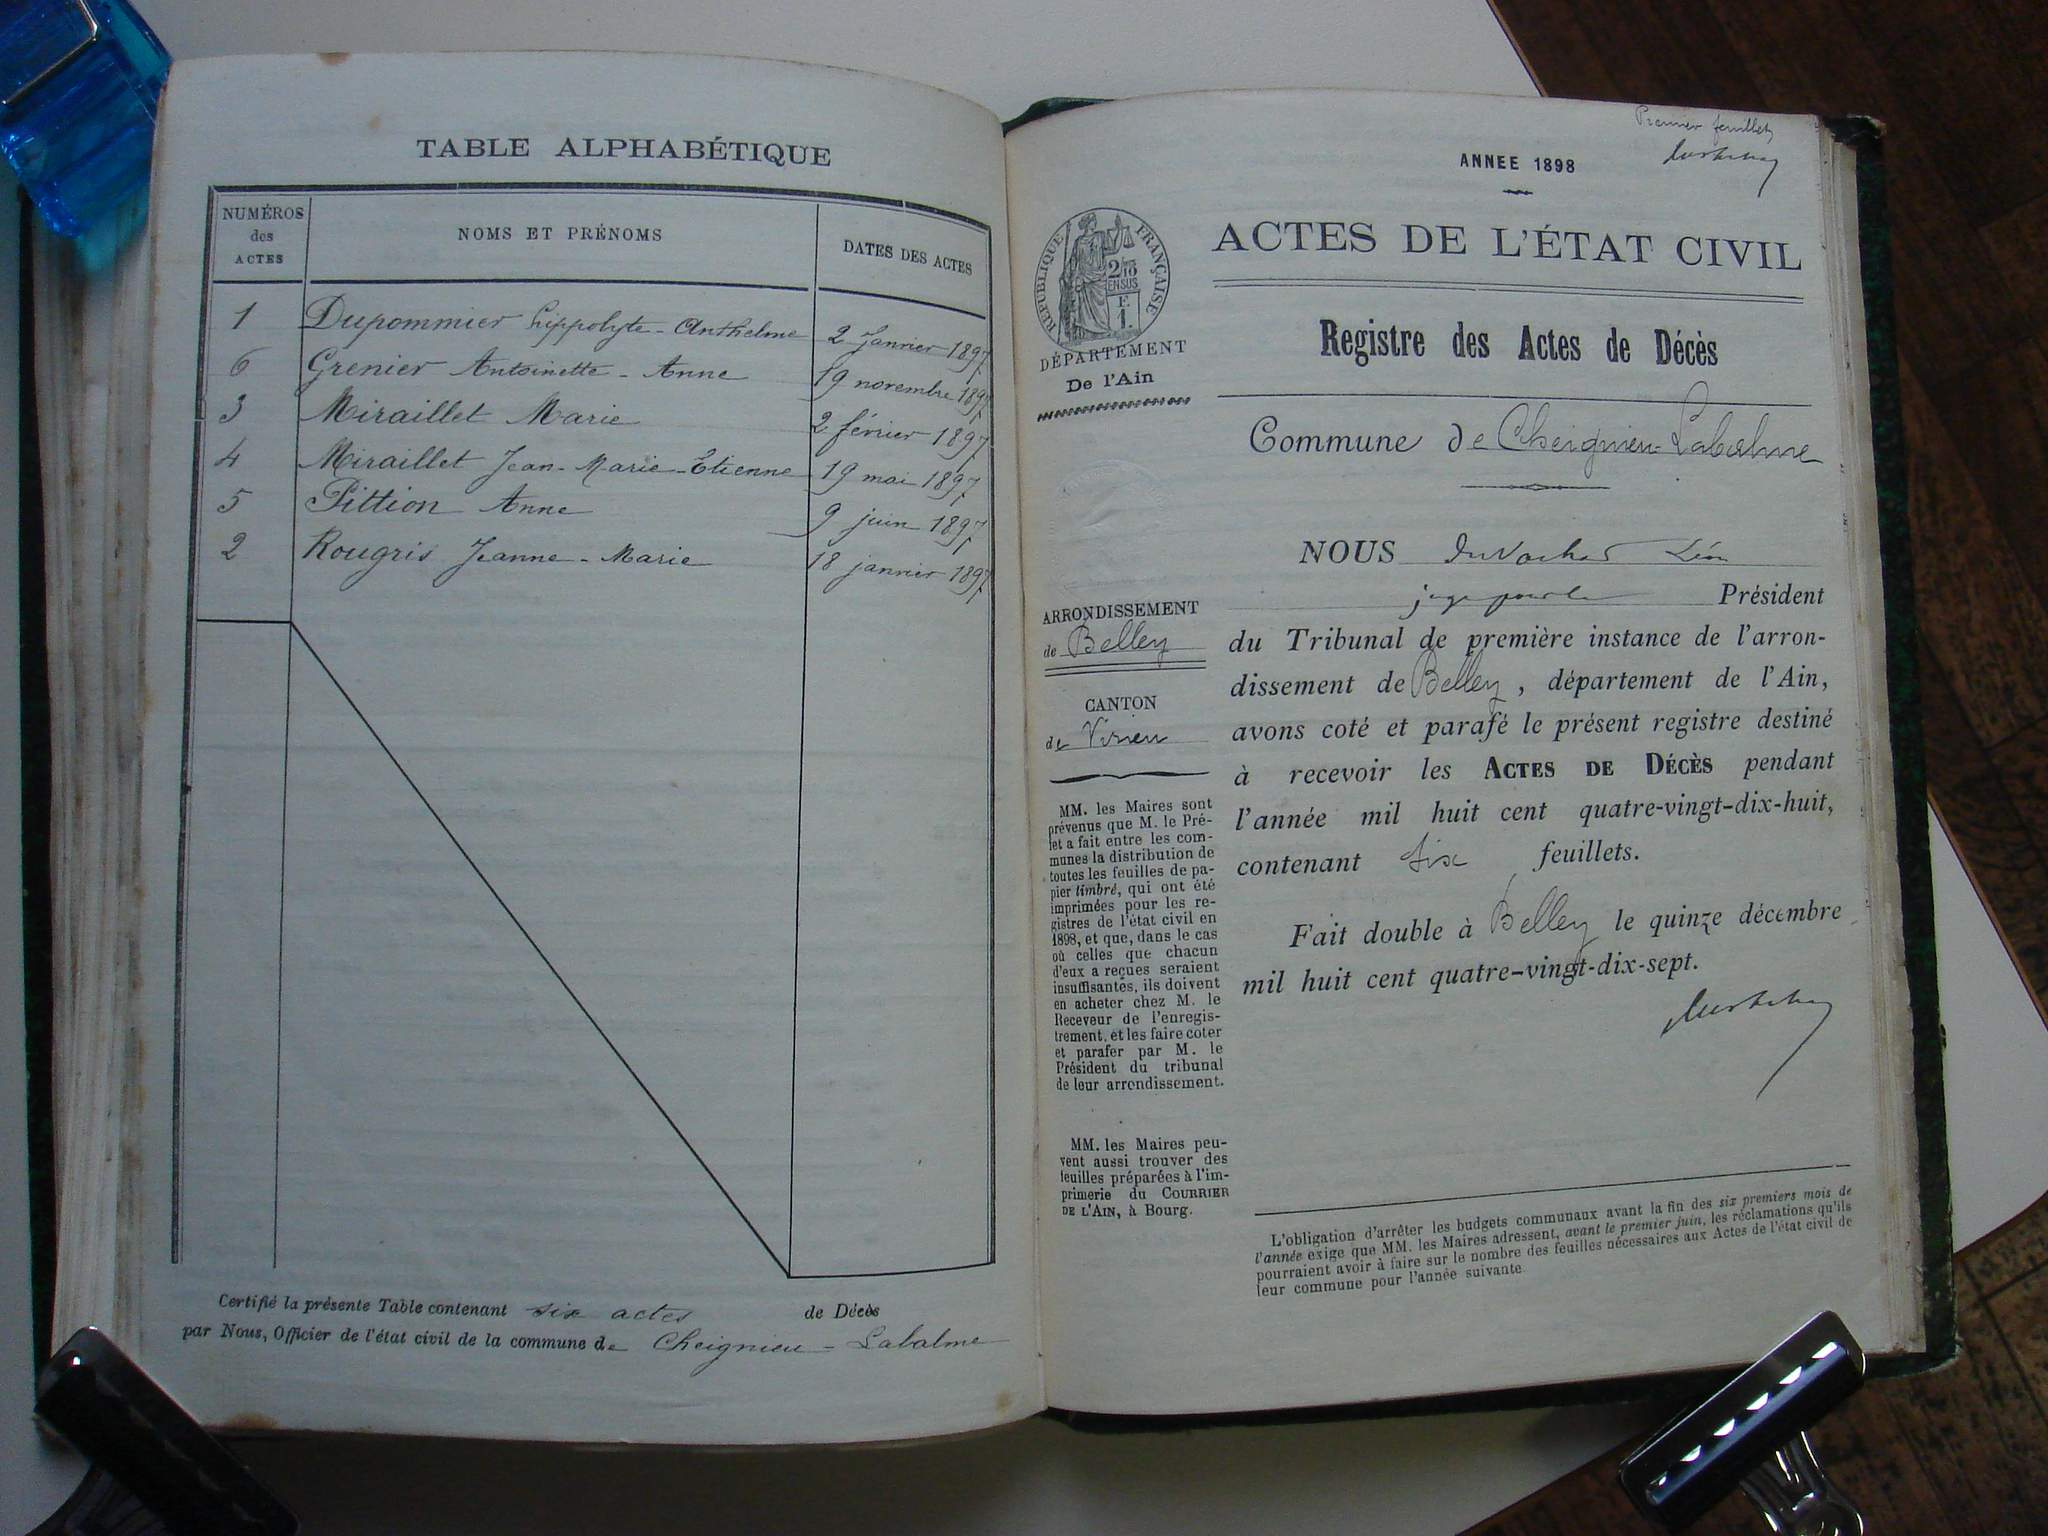 TABLE ALPHABÉTIQUE
NUMÉROS des ACTES
NOMS ET PRÉNOMS
DATES DES ACTES
1 Dupommier hippolyte-Anthelme 2 Janvier 1897
6 Grenier Antoinette-Anne 19 novembre 1897
3 Miraillet Marie 2 février 1897
4 Miraillet Jean-Marie-Etienne 19 mai 1897
5 Pittion Anne 9 juin 1897
2 Rougris Jeanne-Marie 18 janvier 1897
Certifié la présente Table contenant six actes de Décès
par Nous, Officier de l'état civil de la commune de Cheignieu-Labalme
Premier feuillet
ANNEE 1898
RÉPUBLIQUE FRANÇAISE
ACTES DE L'ÉTAT CIVIL
Registre des Actes de Décès
DÉPARTEMENT
De l'Ain
Commune de Cheignieu-Labalme
NOUS Léon
juge pour le Président
du Tribunal de première instance de l'arron-
dissement de Belley, département de l'Ain,
avons coté et parafé le présent registre destiné
à recevoir les ACTES DE DÉCÈS pendant
l'année mil huit cent quatre-vingt-dix-huit,
contenant six feuillets.
Fait double à Belley le quinze décembre
mil huit cent quatre-vingt-dix-sept.
ARRONDISSEMENT
de Belley
CANTON
de Virieu
MM. les Maires sont
prévenus que M. le Pré-
fet a fait entre les com-
munes la distribution de
toutes les feuilles de pa-
pier timbré, qui ont été
imprimées pour les re-
gistres de l'état civil en
1898, et que, dans le cas
où celles que chacun
d'eux a reçues seraient
insuffisantes, ils doivent
en acheter chez M. le
Receveur de l'enregis-
trement, et les faire coter
et parafer par M. le
Président du tribunal
de leur arrondissement.
MM. les Maires peu-
vent aussi trouver des
feuilles préparées à l'im-
primerie du COURRIER
DE L'AIN, à Bourg.
L'obligation d'arrêter les budgets communaux avant la fin des six premiers mois de
l'année exige que MM. les Maires adressent, avant le premier juin, les réclamations qu'ils
pourraient avoir à faire sur le nombre des feuilles nécessaires aux Actes de l'état civil de
leur commune pour l'année suivante.